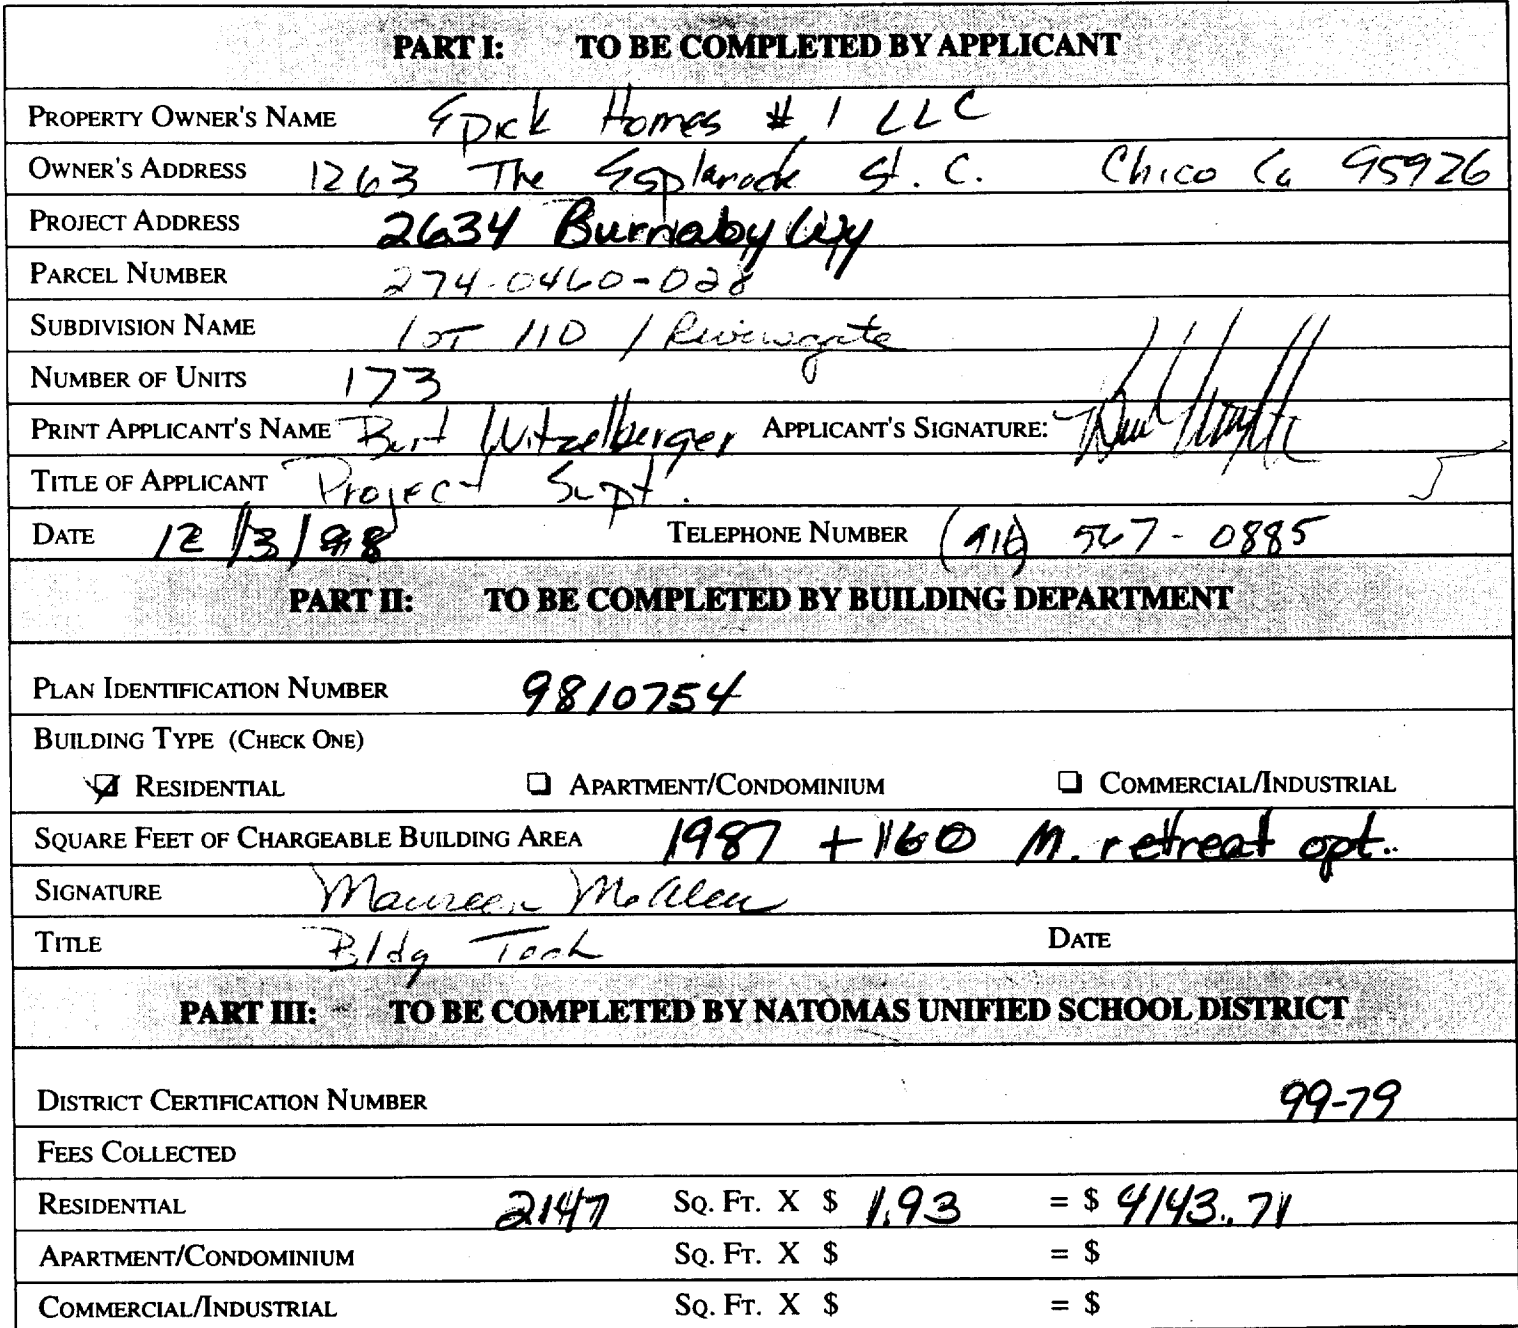 PART I: TO BE COMPLETED BY APPLICANT
PROPERTY OWNER'S NAME Epick Homes # 1 LLC
OWNER'S ADDRESS 1263 The Esplanade St. C. Chico Ca 95926
PROJECT ADDRESS 2634 Burnaby Wy
PARCEL NUMBER 274-0460-028
SUBDIVISION NAME Lot 110 / Riversgate
NUMBER OF UNITS 173
PRINT APPLICANT'S NAME Burt Witzelberger APPLICANT'S SIGNATURE:
TITLE OF APPLICANT Project Supt.
DATE 12/3/98 TELEPHONE NUMBER (916) 567-0885
PART II: TO BE COMPLETED BY BUILDING DEPARTMENT
PLAN IDENTIFICATION NUMBER 9810754
BUILDING TYPE (CHECK ONE)
RESIDENTIAL APARTMENT/CONDOMINIUM COMMERCIAL/INDUSTRIAL
SQUARE FEET OF CHARGEABLE BUILDING AREA 1987 + 160 M. retreat opt.
SIGNATURE Maureen
TITLE Bldg Tech DATE
PART III: TO BE COMPLETED BY NATOMAS UNIFIED SCHOOL DISTRICT
DISTRICT CERTIFICATION NUMBER 99-79
FEES COLLECTED
RESIDENTIAL 2147 SQ. FT. X $ 1.93 = $ 4143.71
APARTMENT/CONDOMINIUM SQ. FT. X $ = $
COMMERCIAL/INDUSTRIAL SQ. FT. X $ = $